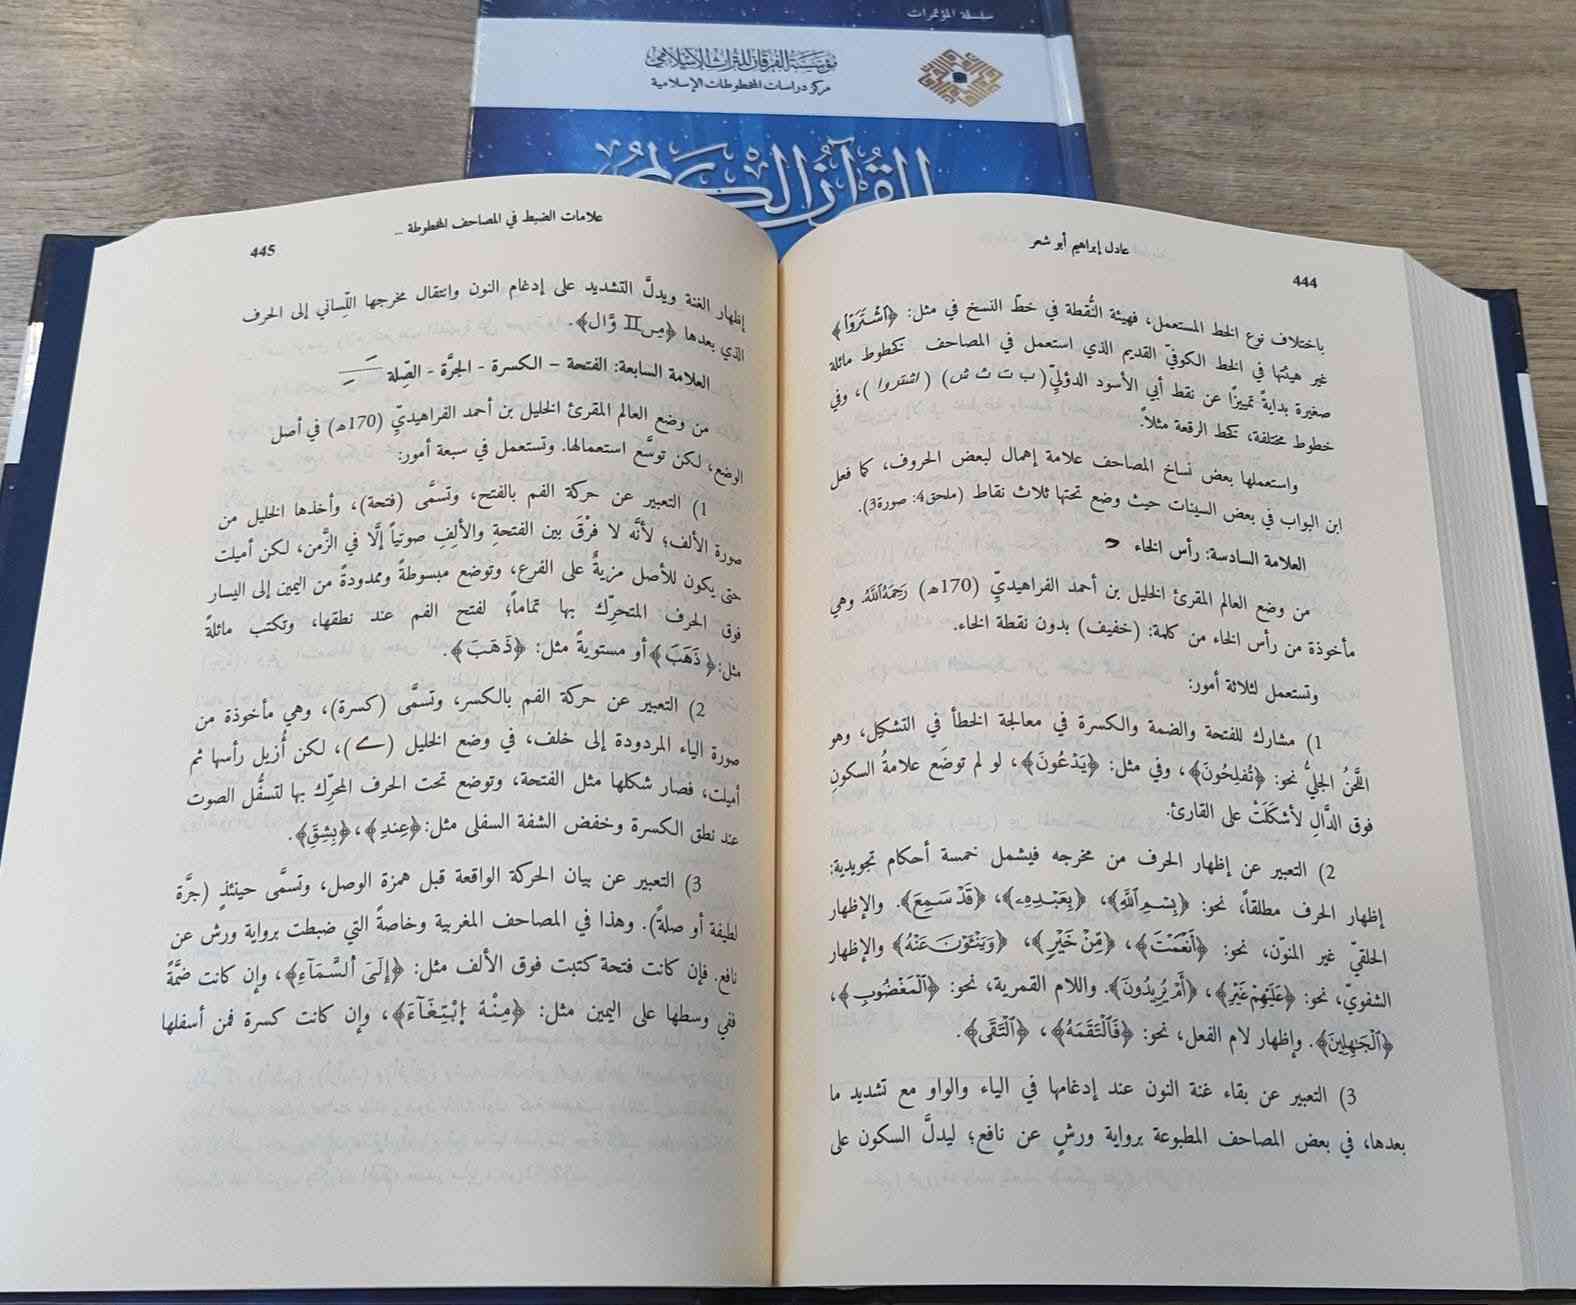 سلسلة المؤتمرات
مؤسسة الفرقان للتراث الإسلامي
مركز دراسات المخطوطات الإسلامية
القرآن الكريم
عادل إبراهيم أبو شعر
444
باختلاف نوع الخط المستعمل، فهيئة النُّقطة في خطّ النسخ في مثل: ﴿ٱشْتَرَوُا۟﴾
غير هيئتها في الخط الكوفيّ القديم الذي استعمل في المصاحف كخطوط مائلة
صغيرة بدايةً تمييزًا عن نقط أبي الأسود الدؤليّ (ب ت ث ش) (اشتروا)، وفي
خطوط مختلفة، كخط الرقعة مثلاً.
واستعملها بعض نساخ المصاحف علامة إهمال لبعض الحروف، كما فعل
ابن البواب في بعض السينات حيث وضع تحتها ثلاث نقاط (ملحق4: صورة3).
العلامة السادسة: رأس الخاء
من وضع العالم المقرئ الخليل بن أحمد الفراهيديّ (170هـ) رَحِمَهُ ٱللَّهُ وهي
مأخوذة من رأس الخاء من كلمة: (خفيف) بدون نقطة الخاء.
وتستعمل لثلاثة أمور:
1) مشارك للفتحة والضمة والكسرة في معالجة الخطأ في التشكيل، وهو
اللَّحنُ الجليُّ نحو: ﴿تُفْلِحُونَ﴾، وفي مثل: ﴿يَدْعُونَ﴾، لو لم توضَع علامةُ السكونِ
فوق الدَّالِ لأشكَلَتْ على القارئ.
2) التعبير عن إظهار الحرف من مخرجه فيشمل خمسة أحكام تجويدية:
إظهار الحرف مطلقاً، نحو: ﴿بِسْمِ ٱللَّهِ﴾، ﴿بِعَبْدِهِۦ﴾، ﴿قَدْ سَمِعَ﴾. والإظهار
الحلقيّ غير المنوّن، نحو: ﴿أَنْعَمْتَ﴾، ﴿مِّنْ خَيْرٍ﴾، ﴿وَيَنْـَٔوْنَ عَنْهُ﴾ والإظهار
الشفويّ، نحو: ﴿عَلَيْهِمْ غَيْرِ﴾، ﴿أَمْ يُرِيدُونَ﴾. واللام القمرية، نحو: ﴿ٱلْمَغْضُوبِ﴾،
﴿ٱلْجَٰهِلِينَ﴾. وإظهار لام الفعل، نحو: ﴿فَٱلْتَقَمَهُ﴾، ﴿ٱلْتَقَى﴾.
3) التعبير عن بقاء غنة النون عند إدغامها في الياء والواو مع تشديد ما
بعدها، في بعض المصاحف المطبوعة برواية ورشٍ عن نافع؛ ليدلَّ السكون على
علامات الضبط في المصاحف المخطوطة ...
445
إظهار الغنة ويدلَّ التشديد على إدغام النون وانتقال مخرجها اللِّساني إلى الحرف
الذي بعدها ﴿مِن وَّالٍ﴾.
العلامة السابعة: الفتحة - الكسرة - الجرَّة - الصِّلة
من وضع العالم المقرئ الخليل بن أحمد الفراهيديّ (170هـ) في أصل
الوضع، لكن توسَّع استعمالها. وتستعمل في سبعة أمور:
1) التعبير عن حركة الفم بالفتح، وتسمَّى (فتحة)، وأخذها الخليل من
صورة الألف؛ لأنَّه لا فرْقَ بين الفتحةِ والألِفِ صوتياً إلَّا في الزَّمن، لكن أميلت
حتى يكون للأصل مزيةٌ على الفرع، وتوضع مبسوطةً وممدودةً من اليمين إلى اليسار
فوق الحرف المتحرِّك بها تماماً؛ لفتح الفم عند نطقها، وتكتب مائلةً
مثل: ﴿ذَهَبَ﴾ أو مستويةً مثل: ﴿ذَهَبَ﴾.
2) التعبير عن حركة الفم بالكسر، وتسمَّى (كسرة)، وهي مأخوذة من
صورة الياء المردودة إلى خلف، في وضع الخليل (ے)، لكن أُزيل رأسها ثم
أميلت، فصار شكلها مثل الفتحة، وتوضع تحت الحرف المحرِّك بها لتسفُّل الصوت
عند نطق الكسرة وخفض الشفة السفلى مثل: ﴿عِندِ﴾، ﴿بِشِقِّ﴾.
3) التعبير عن بيان الحركة الواقعة قبل همزة الوصل، وتسمَّى حينئذٍ (جرَّة
لطيفة أو صلة). وهذا في المصاحف المغربية وخاصةً التي ضبطت برواية ورش عن
نافع. فإن كانت فتحة كتبت فوق الألف مثل: ﴿إِلَى اَ۬لسَّمَآءِ﴾، وإن كانت ضمَّةً
ففي وسطها على اليمين مثل: ﴿مِنْهُ ابْتِغَآءَ﴾، وإن كانت كسرة فمن أسفلها